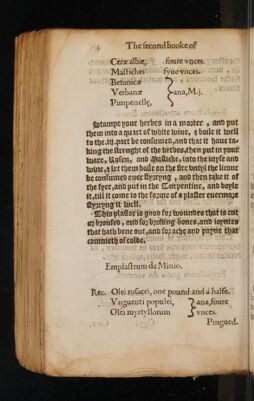 The second booke of
Ceræ albæ, foure vnces.
Mastiches fyue vnces.
Betonicæ
Verbanæ } ana, M.j.
Pimpenellę,
Stampe your herbes in a morter, and put
them into a quart of white wine, & boile it well
to the .iij. part be consumed, and that it haue ta-
king the strenght of the herbes, then put in your
ware, Rosen, and Masticke, into the iuyse and
wine, & let them boile on the fire vntyl the licour
be consumed euer styrryng, and then take it of
the fyer, and put in the Turpentine, and boyle
it, till it come to the forme of a plaster euermore
styrryng it well.
This plaster is good for woundes that is cut
or brused, and for brusting bones, and ioyntes
that hath bene out, and for ache and payne that
commeth of colde.
Emplastrum de Minio.
Rec. Olei rosacei, one pound and a halfe.
Vnguenti populei, } ana, foure
Olei myrtyllorum } vnces.
Pingued.